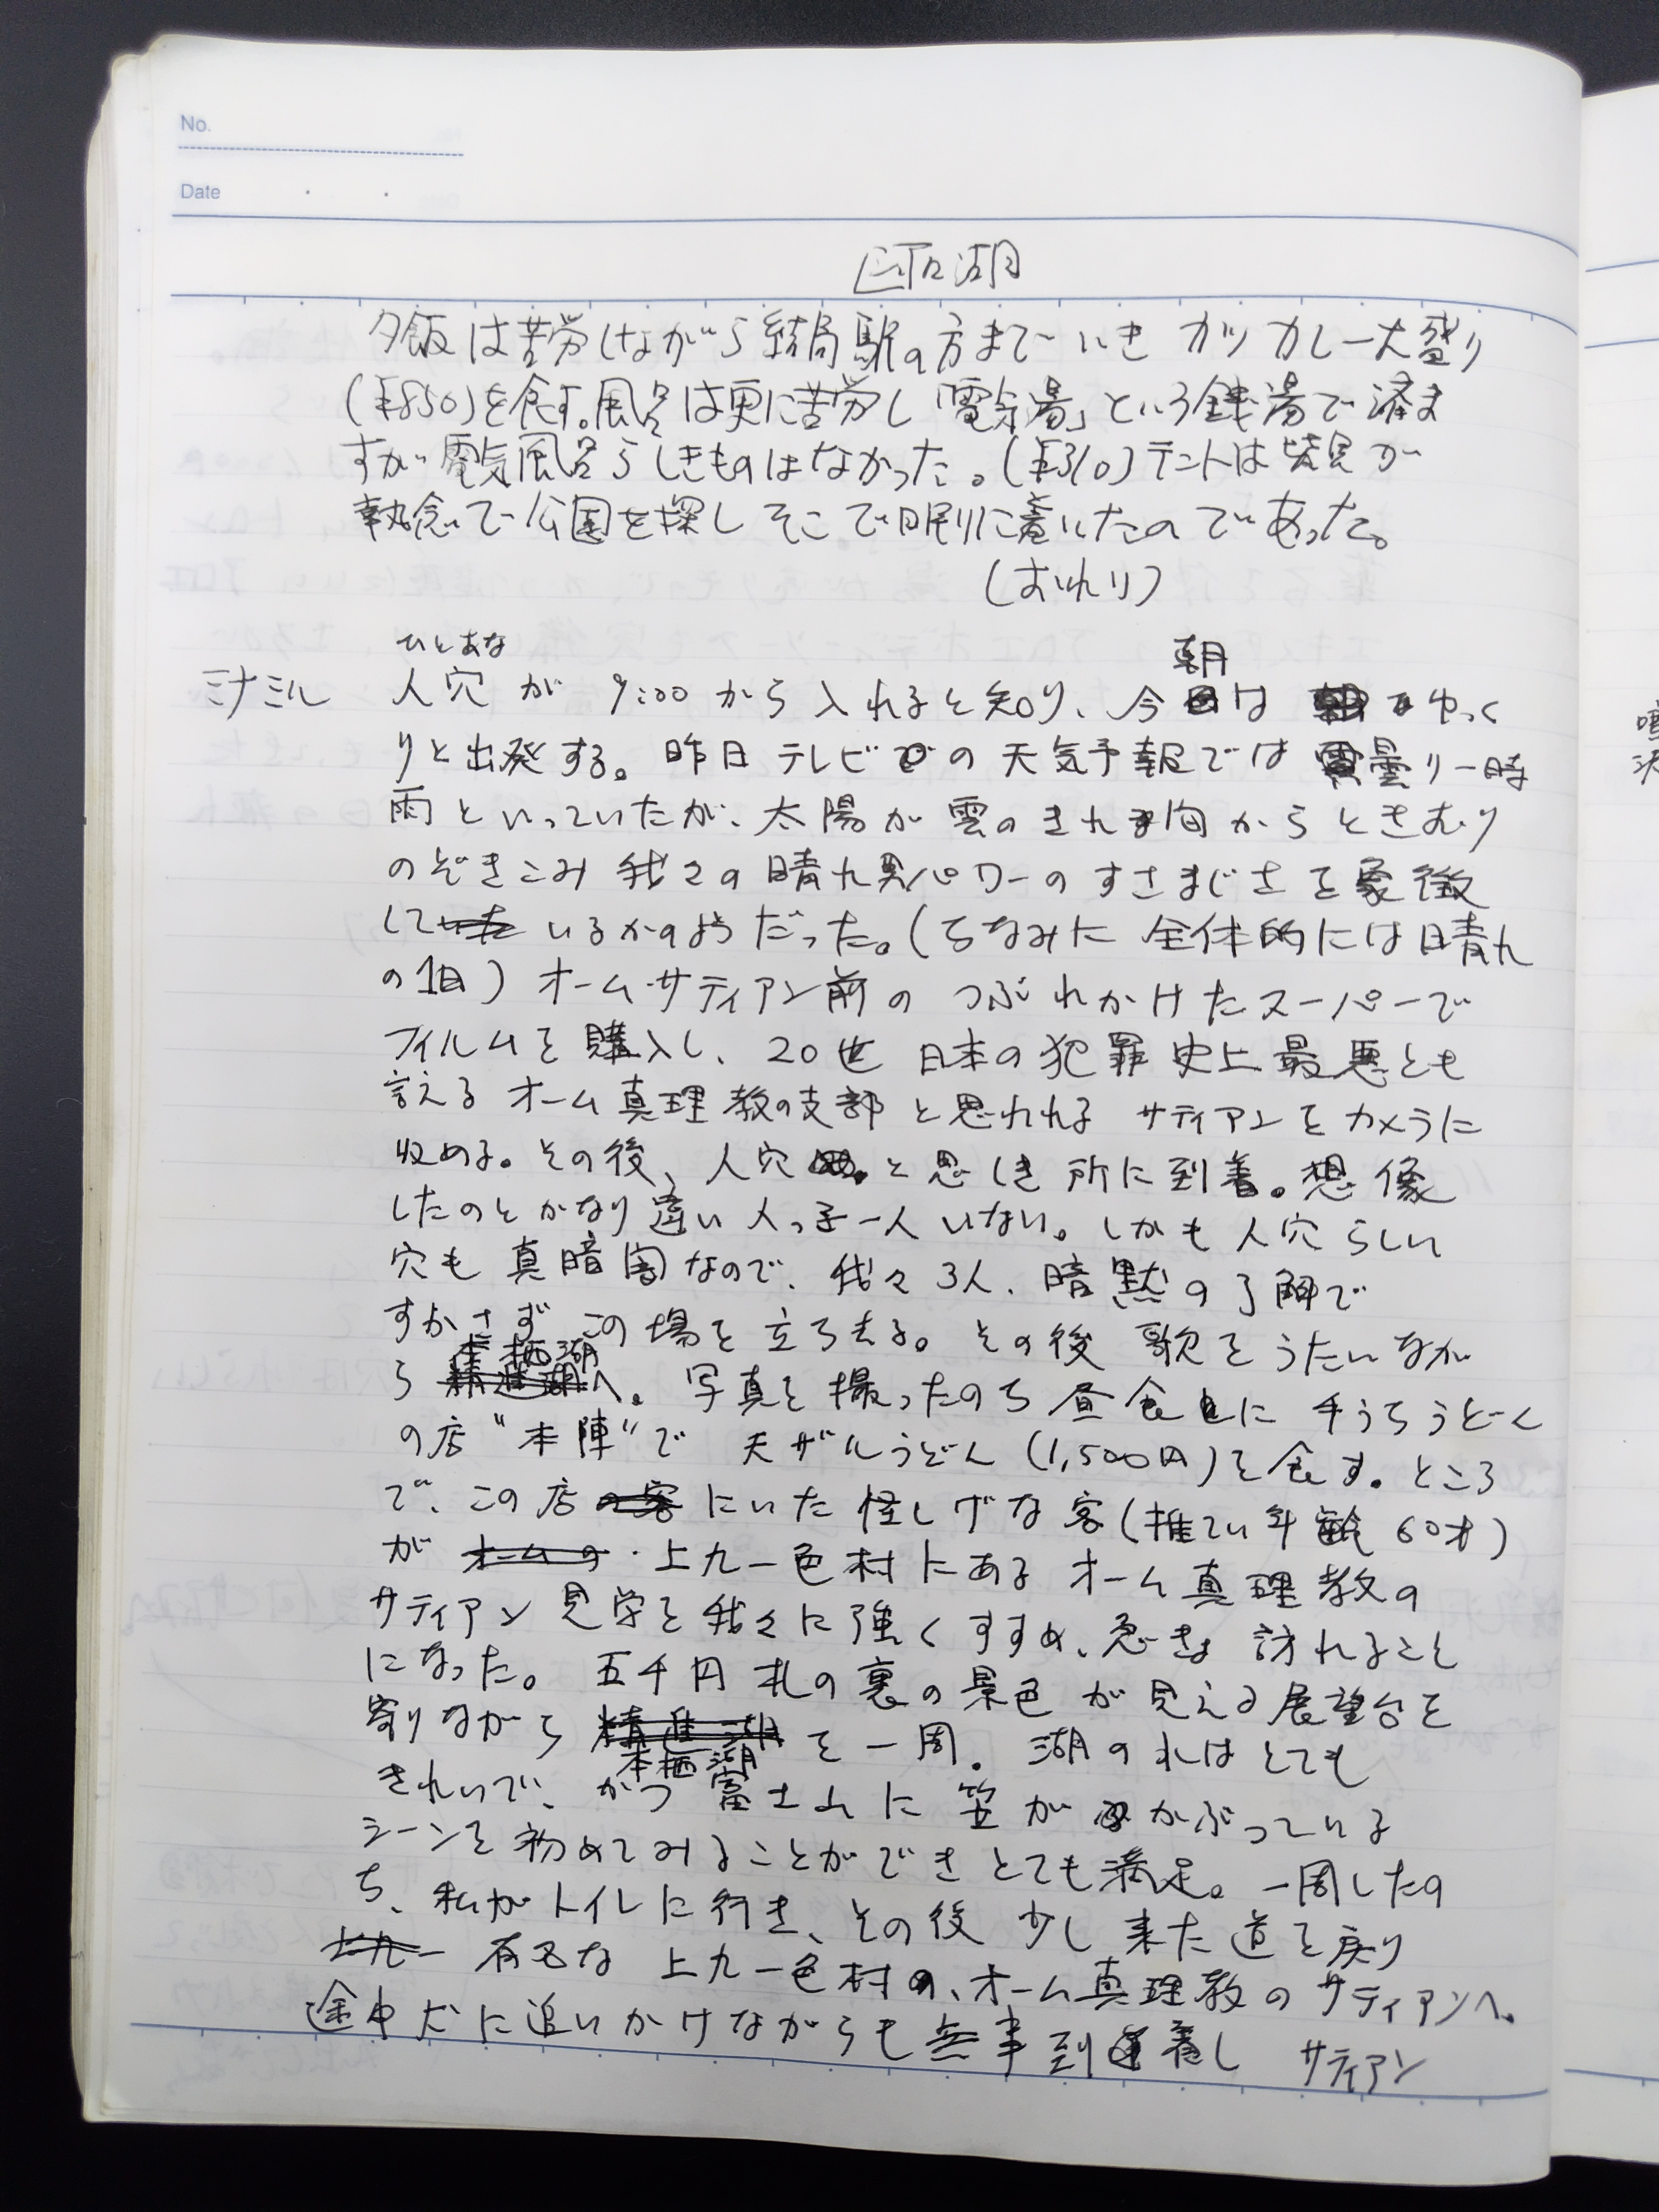 No.
Date
河口湖
夕飯は苦労しながら結局駅の方までいき カツカレー大盛り
(¥850)を食す。風呂は更に苦労し「電気湯」という銭湯で済ま
すが電気風呂らしきものはなかった。(¥310)テントは皆が
執念で公園を探しそこで眠りに着いたのであった。
(おわり)
ひとあな
朝
ミナミル 人穴が 9:00から入れると知り、今は ゆっく
りと出発する。昨日テレビでの天気予報では 曇り一時
雨といっていたが、太陽が雲のきれ間からときおり
のぞきこみ 我々の晴れ男パワーのすさまじさを象徴
して いるかのようだった。(ちなみに 全体的には晴れ
の1日) オーム・サティアン前の つぶれかけたスーパーで
フィルムを購入し、20世 日本の犯罪史上最悪とも
言える オーム真理教の支部と思われる サティアンをカメラに
収める。その後、人穴 と思しき所に到着。想像
したのとかなり違い人っ子一人いない。しかも人穴らしい
穴も真暗闇なので、我々3人、暗黙の了解で
すかさずこの場を立ち去る。その後 歌をうたいなが
本栖湖
ら 精進湖へ。写真を撮ったのち昼食に 手うちうどん
の店"本陣"で 天ザルうどん(1,500円)を食す。ところ
で、この店の客にいた怪しげな客(推てい年齢60才)
が オームの 上九一色村にあるオーム真理教の
サティアン見学を我々に強くすすめ、急きょ訪れること
になった。五千円札の裏の景色が見える展望台を
寄りながら 精進湖を一周。湖の水はとても
本栖湖
きれいで、かつ富士山に笠が かぶっている
シーンを初めてみることができとても満足。一周したの
ち、私がトイレに行き、その後 少し来た道を戻り
上九一 有名な 上九一色村の、オーム真理教のサティアンへ。
途中犬に追いかけながらも無事到着し サティアン